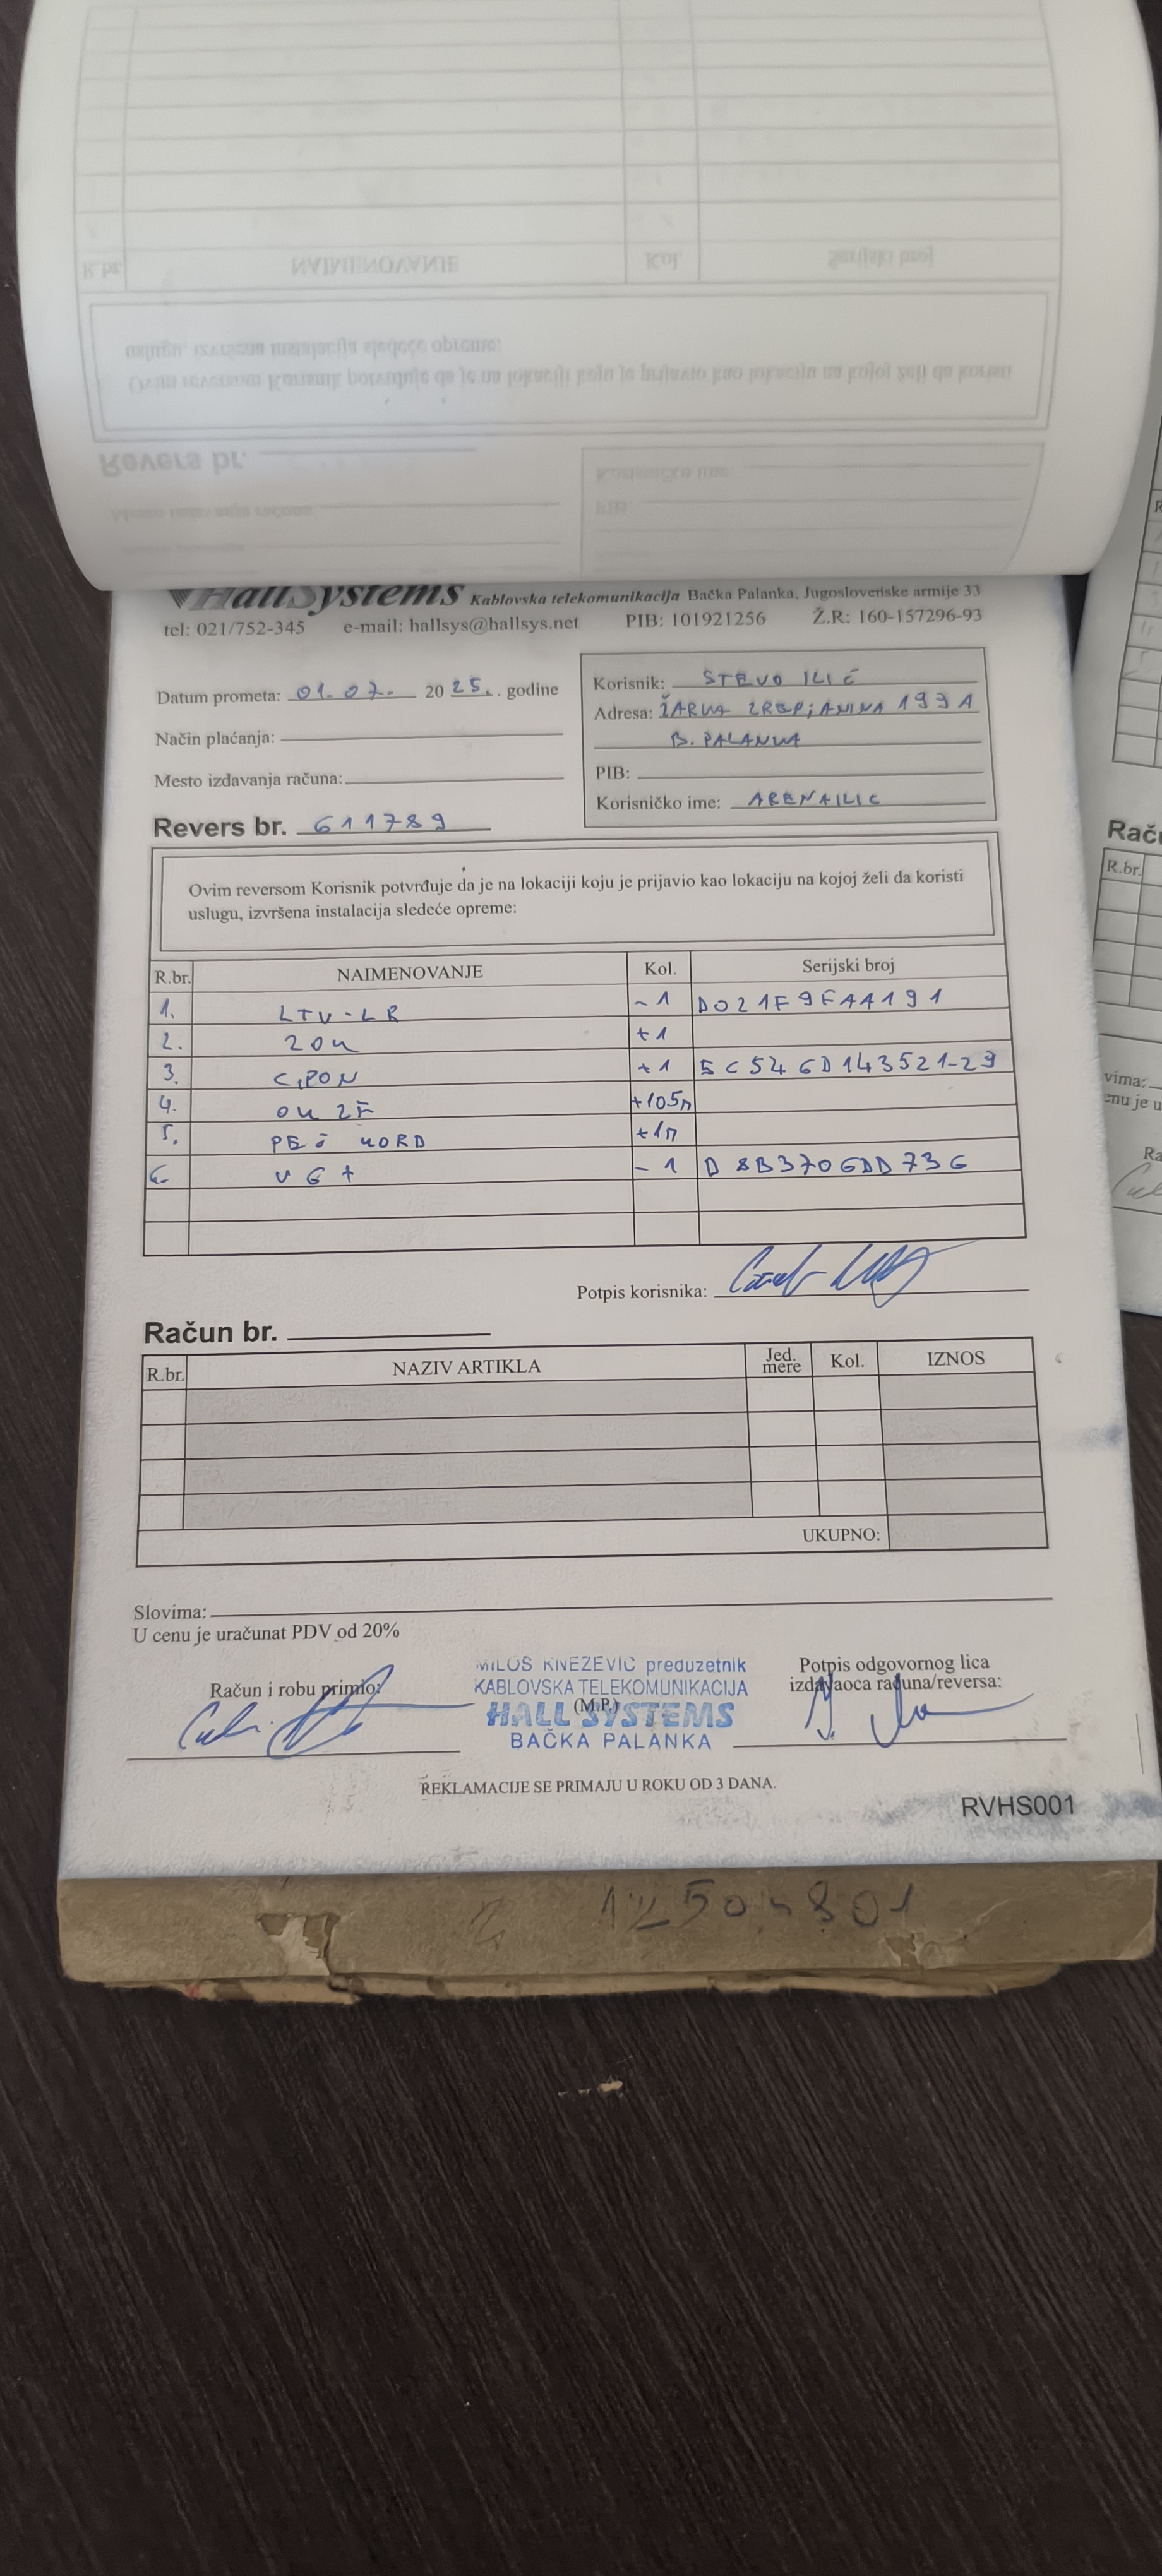 HallSystems Kablovska telekomunikacija Bačka Palanka, Jugoslovenske armije 33
tel: 021/752-345 e-mail: hallsys@hallsys.net PIB: 101921256 Ž.R: 160-157296-93
Datum prometa: 01.07. 20 25. godine
Način plaćanja:
Mesto izdavanja računa:
Revers br. 611789
Korisnik: STEVO ILIĆ
Adresa: ŽARKA ZREPJANINA 199A
B. PALANKA
PIB:
Korisničko ime: ARENAILIC
Ovim reversom Korisnik potvrđuje da je na lokaciji koju je prijavio kao lokaciju na kojoj želi da koristi
uslugu, izvršena instalacija sledeće opreme:
R.br. NAIMENOVANJE Kol. Serijski broj
1. LTV-LR -1 D021F9FAA191
2. ZOK +1
3. GPON +1 5C546D143521-29
4. OK 2F +105m
5. PEČ KORD +1m
6. VG+ -1 D8B3706DD736
Potpis korisnika:
Račun br.
R.br. NAZIV ARTIKLA Jed. mere Kol. IZNOS
UKUPNO:
Slovima:
U cenu je uračunat PDV od 20%
Račun i robu primio:
MILOŠ KNEŽEVIĆ preduzetnik
KABLOVSKA TELEKOMUNIKACIJA
(M.P.)
HALL SYSTEMS
BAČKA PALANKA
Potpis odgovornog lica
izdavaoca računa/reversa:
REKLAMACIJE SE PRIMAJU U ROKU OD 3 DANA.
RVHS001
Raču
R.br.